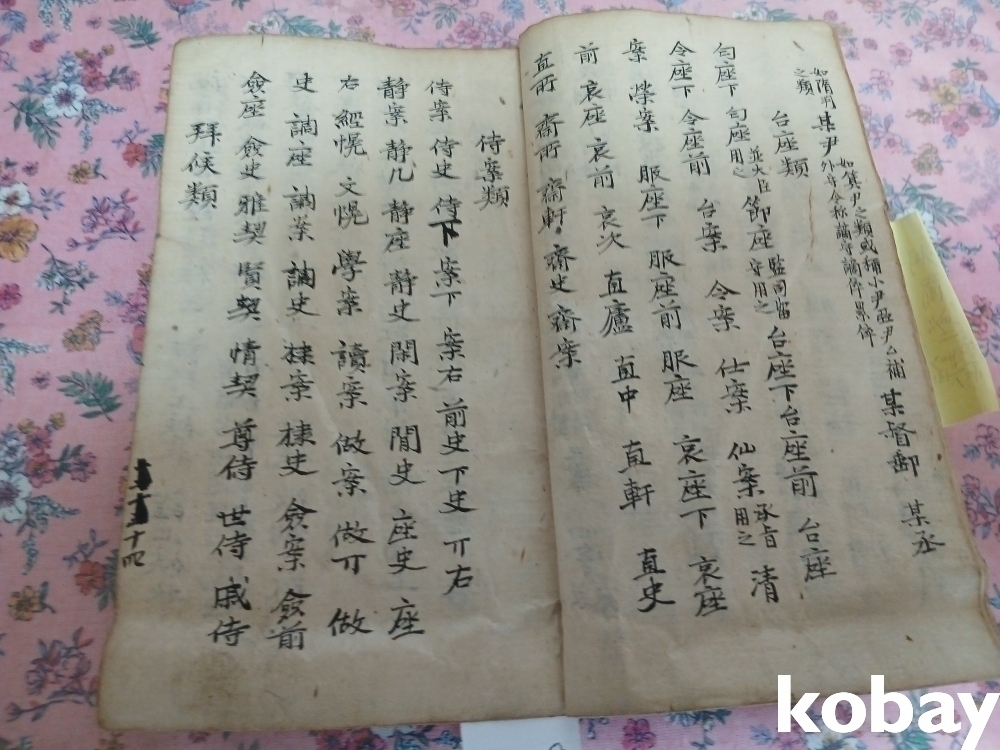 如隋州之類 某尹 如箕尹之類或稱小尹亞尹 外 守令称 某督郵 某丞
台座類
匀座下 匀座 並大臣用之 節座 監司留守用之 台座下 台座前 台座
令座下 令座前 台案 令案 仕案 仙案 承旨用之 清
案 棨案 服座下 服座前 服座 哀座下 哀座
前 哀座 哀前 哀次 直廬 直中 直軒 直史
直所 齋所 齋軒 齋史 齋案
侍案類
侍案 侍史 侍下 案下 案右 前史 下史 丌右
静案 静几 静座 静史 閑案 閒史 座史 座
右 經幌 文幌 學案 讀案 做案 做丌 做
史 調座 案 史 棣案 棣史 僉案 僉前
僉座 僉史 雅契 賢契 情契 尊侍 世侍 戚侍
拜候類
十四
kobay